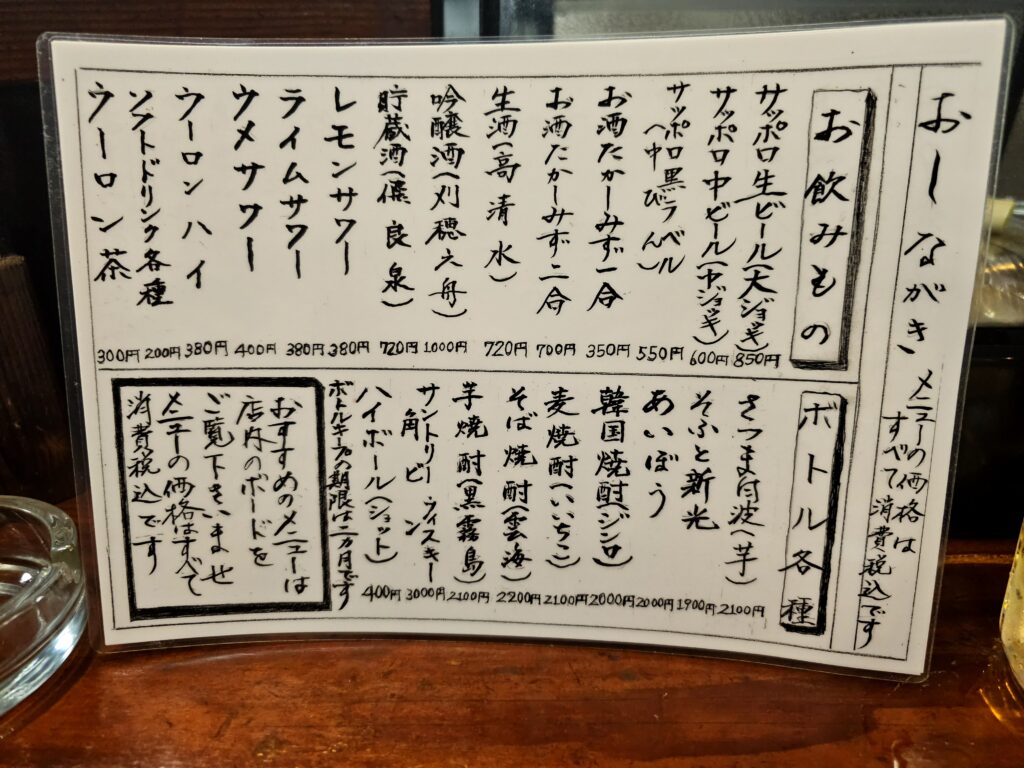 おしながき
メニューの価格は
すべて消費税込です
お飲みもの
サッポロ生ビール(大ジョッキ) 850円
サッポロ中ビール(中ジョッキ) 600円
サッポロ黒ラベル
(中びん) 550円
お酒たかしみず一合 350円
お酒たかしみず二合 700円
生酒(高清水) 720円
吟醸酒(刈穂六舟) 1000円
貯蔵酒(飛良泉) 720円
レモンサワー 380円
ライムサワー 380円
ウメサワー 400円
ウーロンハイ 380円
ソフトドリンク各種 200円
ウーロン茶 300円
ボトル各種
さつま白波(芋) 2100円
そふと新光 1900円
あいぼう 2000円
韓国焼酎(ジンロ) 2000円
麦焼酎(いいちこ) 2100円
そば焼酎(雲海) 2200円
芋焼酎(黒霧島) 2100円
サントリーウィスキー
角ビン 3000円
ハイボール(ショット) 400円
ボトルキープの期限は二カ月です
おすすめのメニューは
店内のボードを
ご覧下さいませ
メニューの価格はすべて
消費税込です